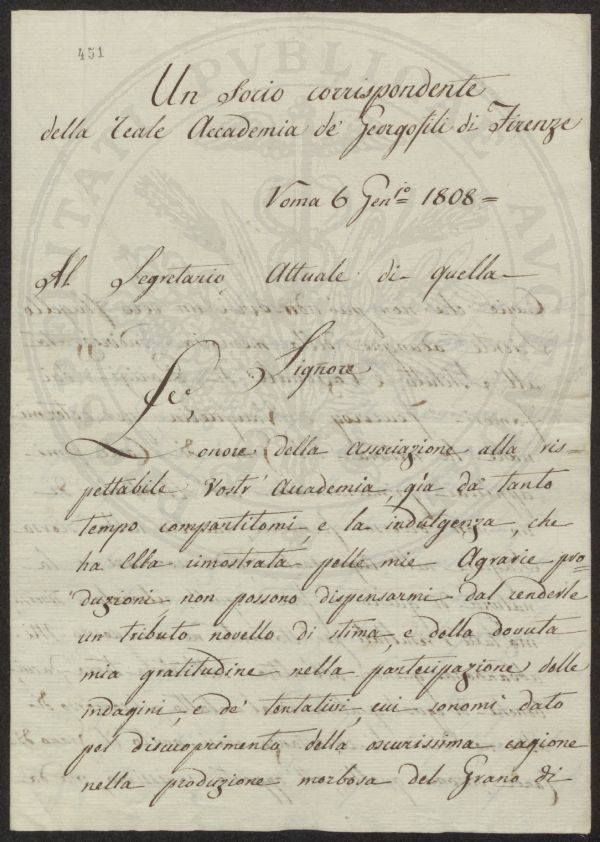 451
Un Socio corrispondente
della Reale Accademia de' Georgofili di Firenze
Roma 6 Gen:io 1808 =
Al Segretario Attuale di quella
Signore
Se,
L'onore della Associazione alla ris=
pettabile Vostr' Accademia, già da tanto
tempo compartitomi, e la indulgenza, che
ha Ella rimostrata pelle mie Agrarie pro=
duzioni non possono dispensarmi dal renderle
un tributo novello di stima, e della dovuta
mia gratitudine nella partecipazione delle
indagini, e de' tentativi, cui sonomi dato
pel discuoprimento della oscurissima cagione
nella produzione morbosa del Grano di